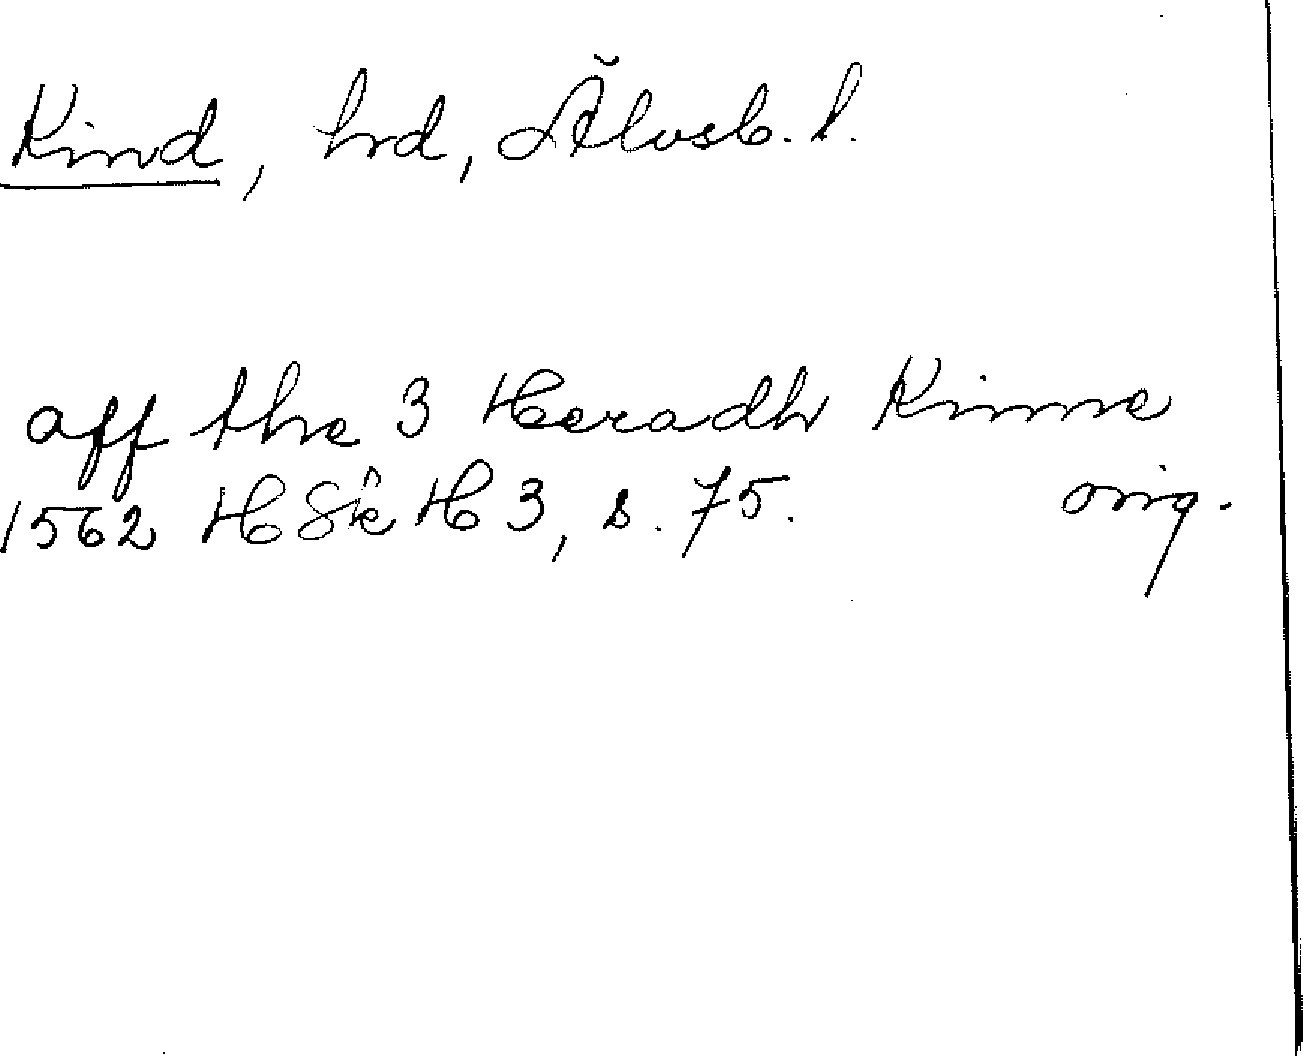 Kind, hrd, Älvsb. l.
aff the 3 Heradh Kinne
1562 HSkH 3, s. 75. orig.